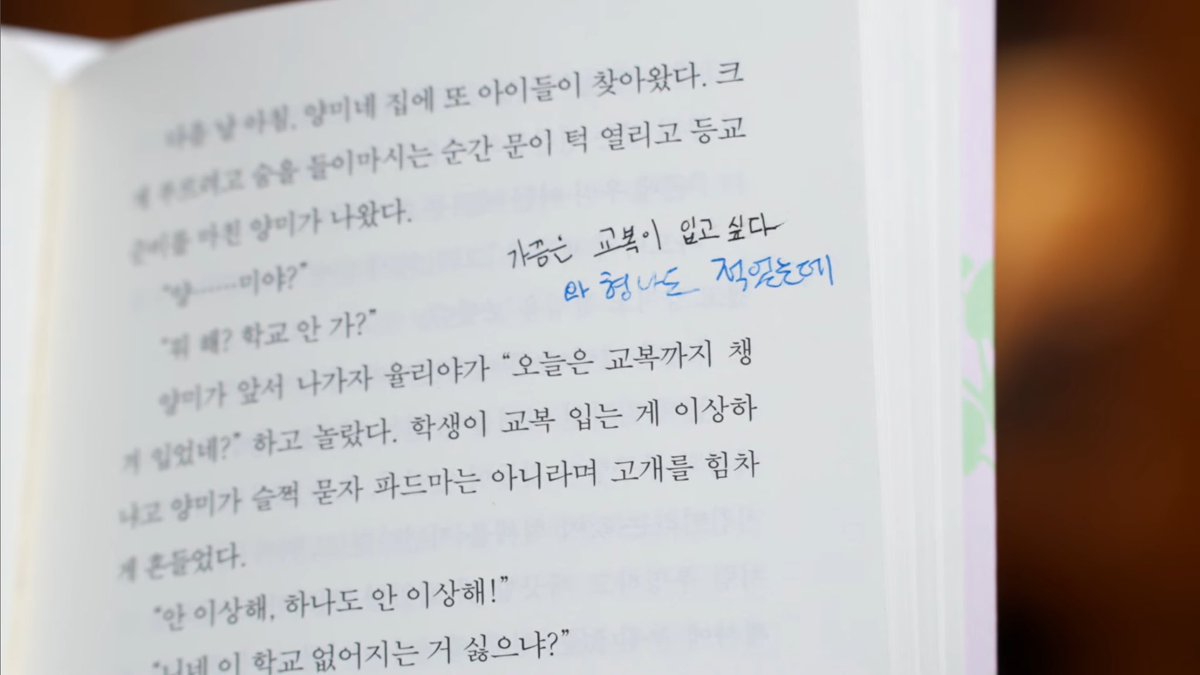 다음 날 아침, 양미네 집에 또 아이들이 찾아왔다. 크
게 부르려고 숨을 들이마시는 순간 문이 턱 열리고 등교
준비를 마친 양미가 나왔다.
가끔은 교복이 입고 싶다
“양……미야?”
와 형 나도 적었는데
“뭐 해? 학교 안 가?”
양미가 앞서 나가자 율리야가 “오늘은 교복까지 챙
겨 입었네?” 하고 놀랐다. 학생이 교복 입는 게 이상하
냐고 양미가 슬쩍 묻자 파드마는 아니라며 고개를 힘차
게 흔들었다.
“안 이상해, 하나도 안 이상해!”
“니네 이 학교 없어지는 거 싫으냐?”